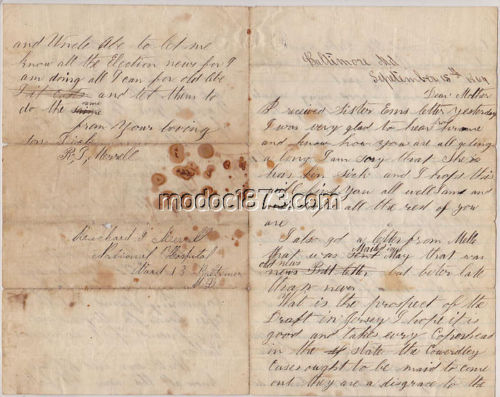 Baltimore Md
September 15th 1864
Dear Mother
I received Sister Ems letter yesterday
I was very glad to hear from
and know how you are all geting
a long I am sory that She is
has ben sick and I hope this
will find you all well and
and all the rest of you
are
I also got a letter from Mell
that was sent May that was
old news but beter late
than never
What is the prospect of the
Draft in Jersey I hope it is
good and takes every Copperhead
in the state the Cowerdley
Cuses ought to be maid to come
out they are a disgrace to the
and Uncle Abe to let me
know all the Election news for I
am doing all I can for old Abe
and let them to
do the same
from Your loving
son
R. J. Merrell
Reachard J Merrell
National Hospital
Ward 13 Baltimer
M.D.
modoc1873.com